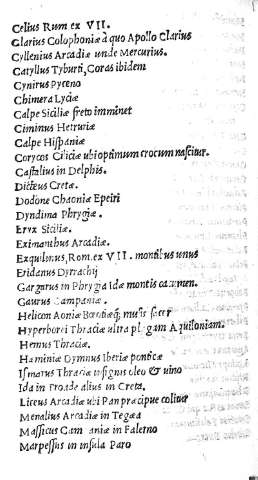 Celius Rom ex VII.
Clarius Colophoniæ à quo Apollo Clarius
Cyllenius Arcadiæ unde Mercurius.
Catyllus Tyburti, Coras ibidem
Cynirus Pyreno
Chimera Lyciæ
Calpe Siciliæ freto imminet
Ciminus Hetruriæ
Calpe Hispaniæ
Corycos Ciliciæ ubi optimum crocum nascitur.
Castalius in Delphis.
Dicteus Cretæ.
Dodone Chaoniæ Epeiri
Dyndima Phrygiæ.
Eryx Siciliæ.
Erimanthus Arcadiæ.
Exquilonus, Rom. ex VII. montibus unus
Eridanus Dyrrachij
Gargarus in Phrygia idæ montis cacumen.
Gaurus Campaniæ.
Helicon Aoniæ Bœotiæq; musis sacer
Hyperborei Thraciæ ultra plagam Aquiloniam.
Hemus Thraciæ.
Haminiæ Gymnus Iberiæ ponticæ
Ismarus Thraciæ insignis oleo & uino
Ida in Troade alius in Creta.
Liceus Arcadiæ ubi Pan præcipue colitur
Menalius Arcadiæ in Tegæa
Massicus Campaniæ in Falerno
Marpessus in insula Paro